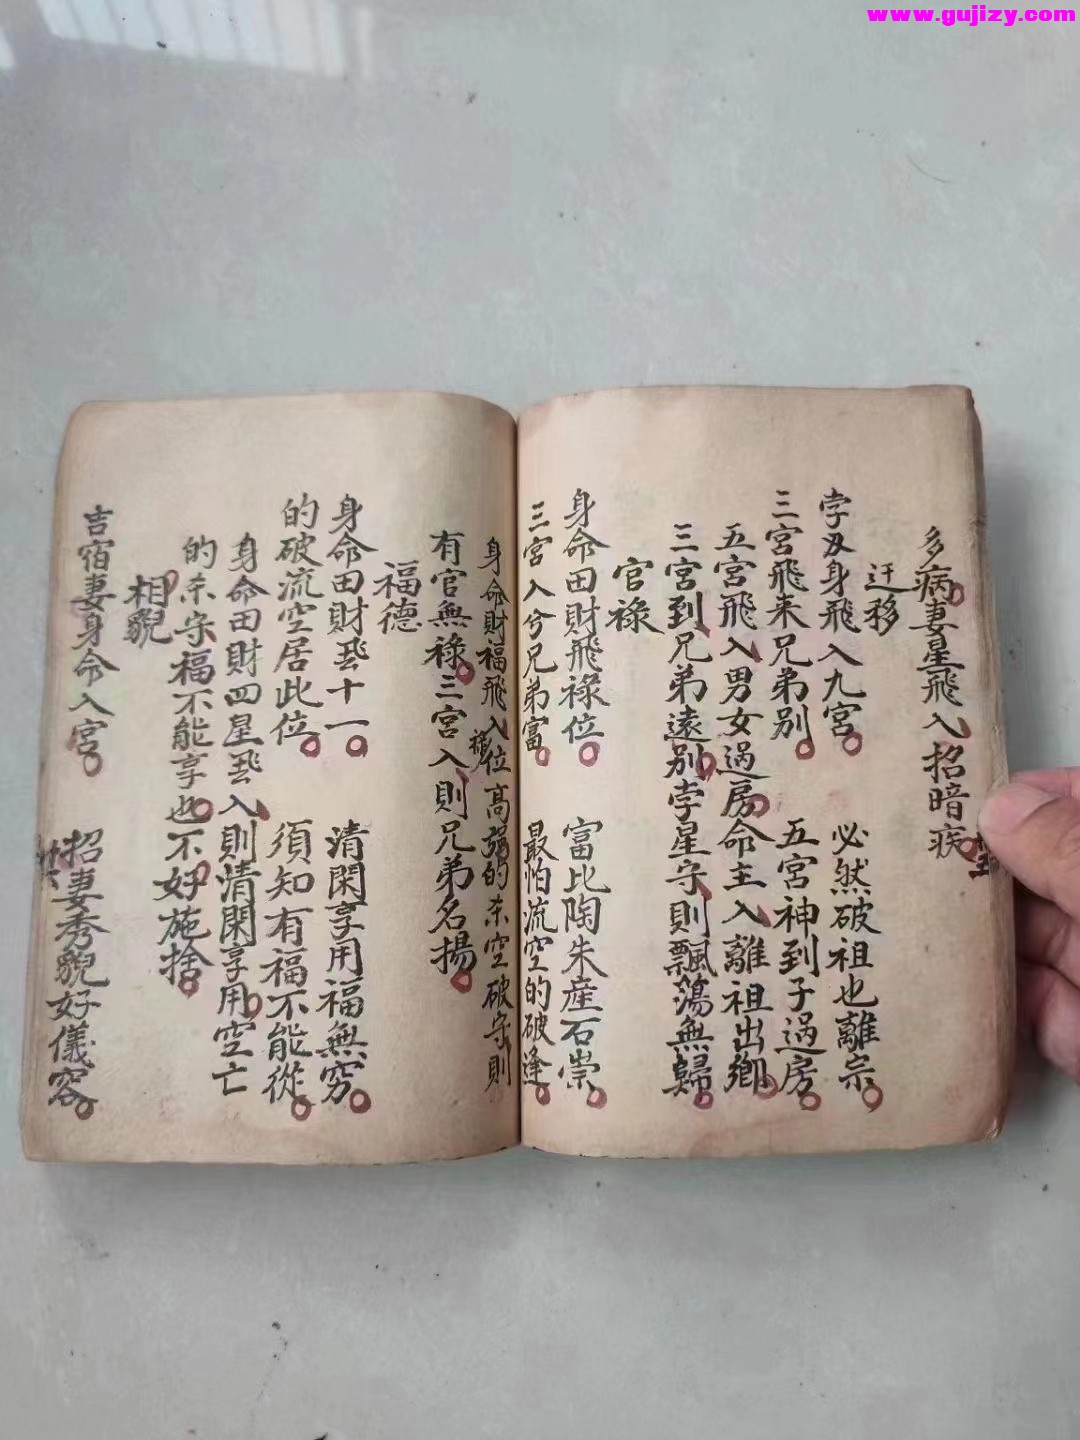 www.gujizy.com
多病妻星飛入招暗疾
迁移
孛及身飛入九宮 必然破祖也離宗
三宮飛来兄弟別 五宮神到子過房
五宮飛入男女過房命主入離祖出鄉
三宮到兄弟遠別孛星守則飄蕩無歸
官祿
身命田財飛祿位 富比陶朱産石崇
三宮入兮兄弟富 最怕流空的破逢
身命財福飛入祿位高强的杀空破守則
有官無祿三宮入則兄弟名揚
福德
身命田財飛十一 清閑享用福無窮
的破流空居此位 須知有福不能從
身命田財四星飛入則清閑享用空亡
的杀守福不能享也不好施捨
相貌
吉宿妻身命入宮 招妻秀貌好儀容